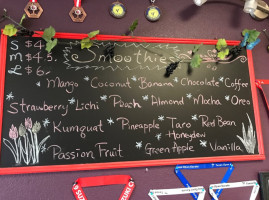 S $4.
M $4.5.
L $6.
Smoothies
* Mango * Coconut * Banana * Chocolate * Coffee
Strawberry * Lichi * Peach * Almond * Mocha * Oreo
* Kumquat * Pineapple * Taro * Red Bean
* Honeydew
* Passion Fruit * Green Apple * Vanilla